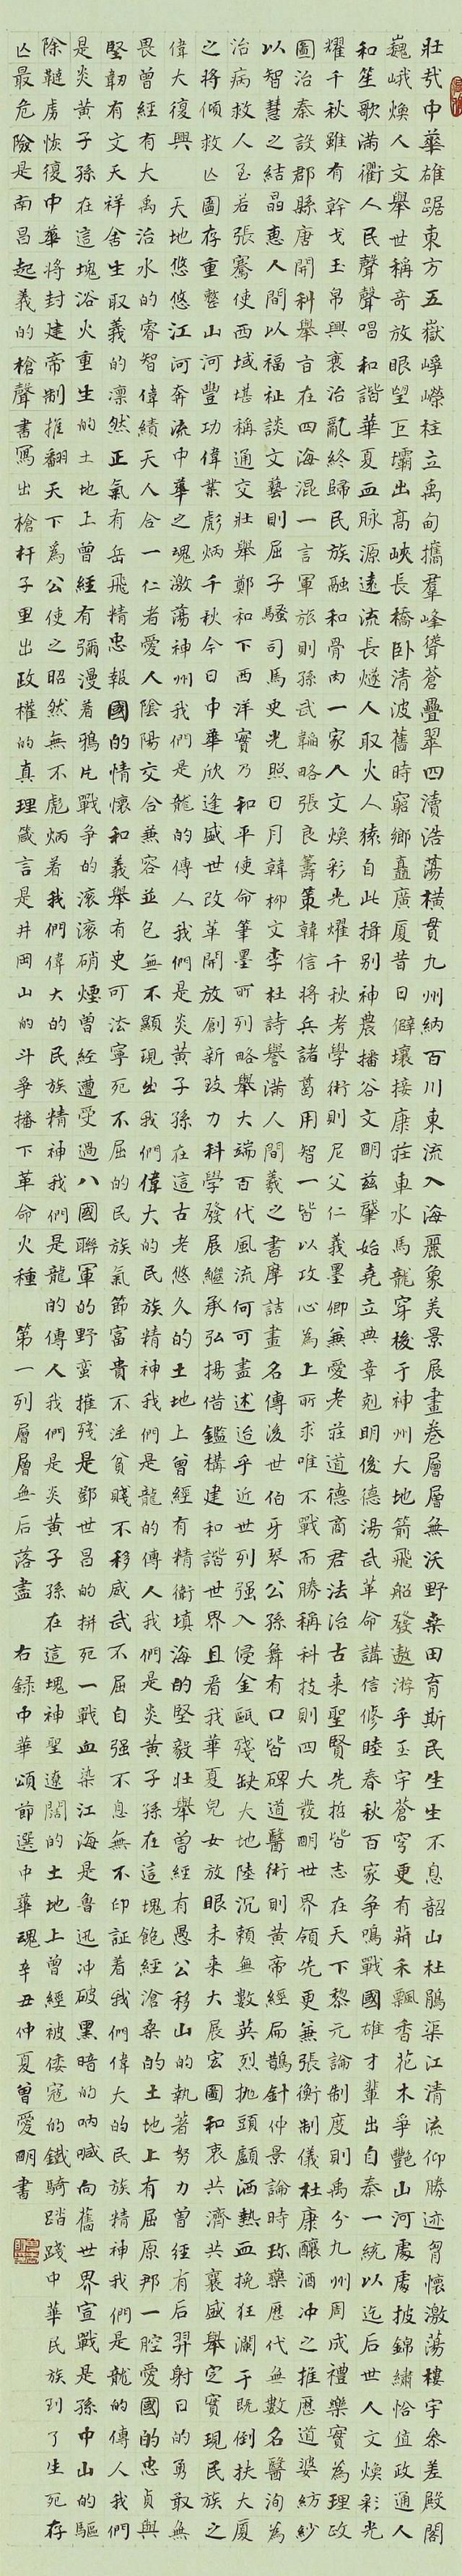 壯哉中華雄踞東方五嶽崢嶸柱立禹甸攜羣峰聳蒼疊翠四瀆浩蕩橫貫九州納百川東流入海麗象美景展畫卷層層無沃野桑田育斯民生生不息韶山杜鵑渠江清流仰勝迹胷懷激蕩樓宇叅差殿閣
巍峨煥人文舉世稱奇放眼望巨壩出高峽長橋卧清波舊時窮鄉矗廣厦昔日僻壤接康莊車水馬龍穿梭于神州大地箭飛船發遨游乎玉宇蒼穹更有蔬禾飄香花木爭艷山河處處披錦繡恰值政通人
和笙歌滿衢人民聲聲唱和諧華夏血脉源遠流長燧人取火人猿自此揖别神農播谷文明兹肇始堯立典章剋明俊德湯武革命講信修睦春秋百家争鳴戰國雄才輩出自秦一統以迄后世人文煥彩光
耀千秋雖有幹戈玉帛興衰治亂終歸民族融和骨肉一家人文煥彩光耀千秋考學術則尼父仁義墨卿兼愛老莊道德商君法治古来聖賢先哲皆志在天下黎元論制度則禹分九州周成禮樂實為理政
圖治秦設郡縣唐開科舉旨在四海混一言軍旅則孫武韜略張良籌策韓信將兵諸葛用智一皆以攻心為上所求唯不戰而勝稱科技則四大發明世界領先更兼張衡制儀杜康釀酒冲之推曆道婆紡紗
以智慧之結晶惠人間以福祉談文藝則屈子騷司馬史光照日月韓柳文李杜詩譽滿人間羲之書摩詰畫名傳後世伯牙琴公孫舞有口皆碑道醫術則黄帝經扁鵲針仲景論時珍藥歷代無數名醫洵為
治病救人至若張騫使西域堪稱通交壯舉鄭和下西洋實乃和平使命筆墨所列略舉大端百代風流何可盡述迨乎近世列强入侵金甌殘缺大地陸沉賴無數英烈抛頭顱洒熱血挽狂瀾于既倒扶大厦
之將傾救亡圖存重整山河豐功偉業彪炳千秋今日中華欣逢盛世改革開放創新致力科學發展繼承弘揚借鑑構建和諧世界且看我華夏兒女放眼未来大展宏圖和衷共濟共襄盛舉定實現民族之
偉大復興 天地悠悠江河奔流中華之魂激蕩神州我們是龍的傳人我們是炎黄子孫在這古老悠久的土地上曾經有精衛填海的堅毅壯舉曾經有愚公移山的執著努力曾經有后羿射日的勇敢無
畏曾經有大禹治水的睿智偉績天人合一仁者愛人陰陽交合兼容並包無不顯現出我們偉大的民族精神我們是龍的傳人我們是炎黄子孫在這塊飽經滄桑的土地上有屈原那一腔愛國的忠貞與
堅韌有文天祥舍生取義的凛然正氣有岳飛精忠報國的情懷和義舉有史可法寧死不屈的民族氣節富貴不淫貧賤不移威武不屈自强不息無不印証着我們偉大的民族精神我們是龍的傳人我們
是炎黄子孫在這塊浴火重生的土地上曾經有彌漫着鴉片戰争的滚滚硝煙曾經遭受過八國聯軍的野蠻摧殘是鄧世昌的拼死一戰血染江海是魯迅冲破黑暗的呐喊向舊世界宣戰是孫中山的驅
除韃虜恢復中華將封建帝制推翻天下為公使之昭然無不彪炳着我們偉大的民族精神我們是龍的傳人我們是炎黄子孫在這塊神聖遼闊的土地上曾經被倭寇的鐵騎踏踐中華民族到了生死存
亡最危險是南昌起義的槍聲書寫出槍杆子里出政權的真理箴言是井岡山的斗爭播下革命火種 第一列層層無后落盡 右録中華頌節選中華魂辛丑仲夏曾愛明書